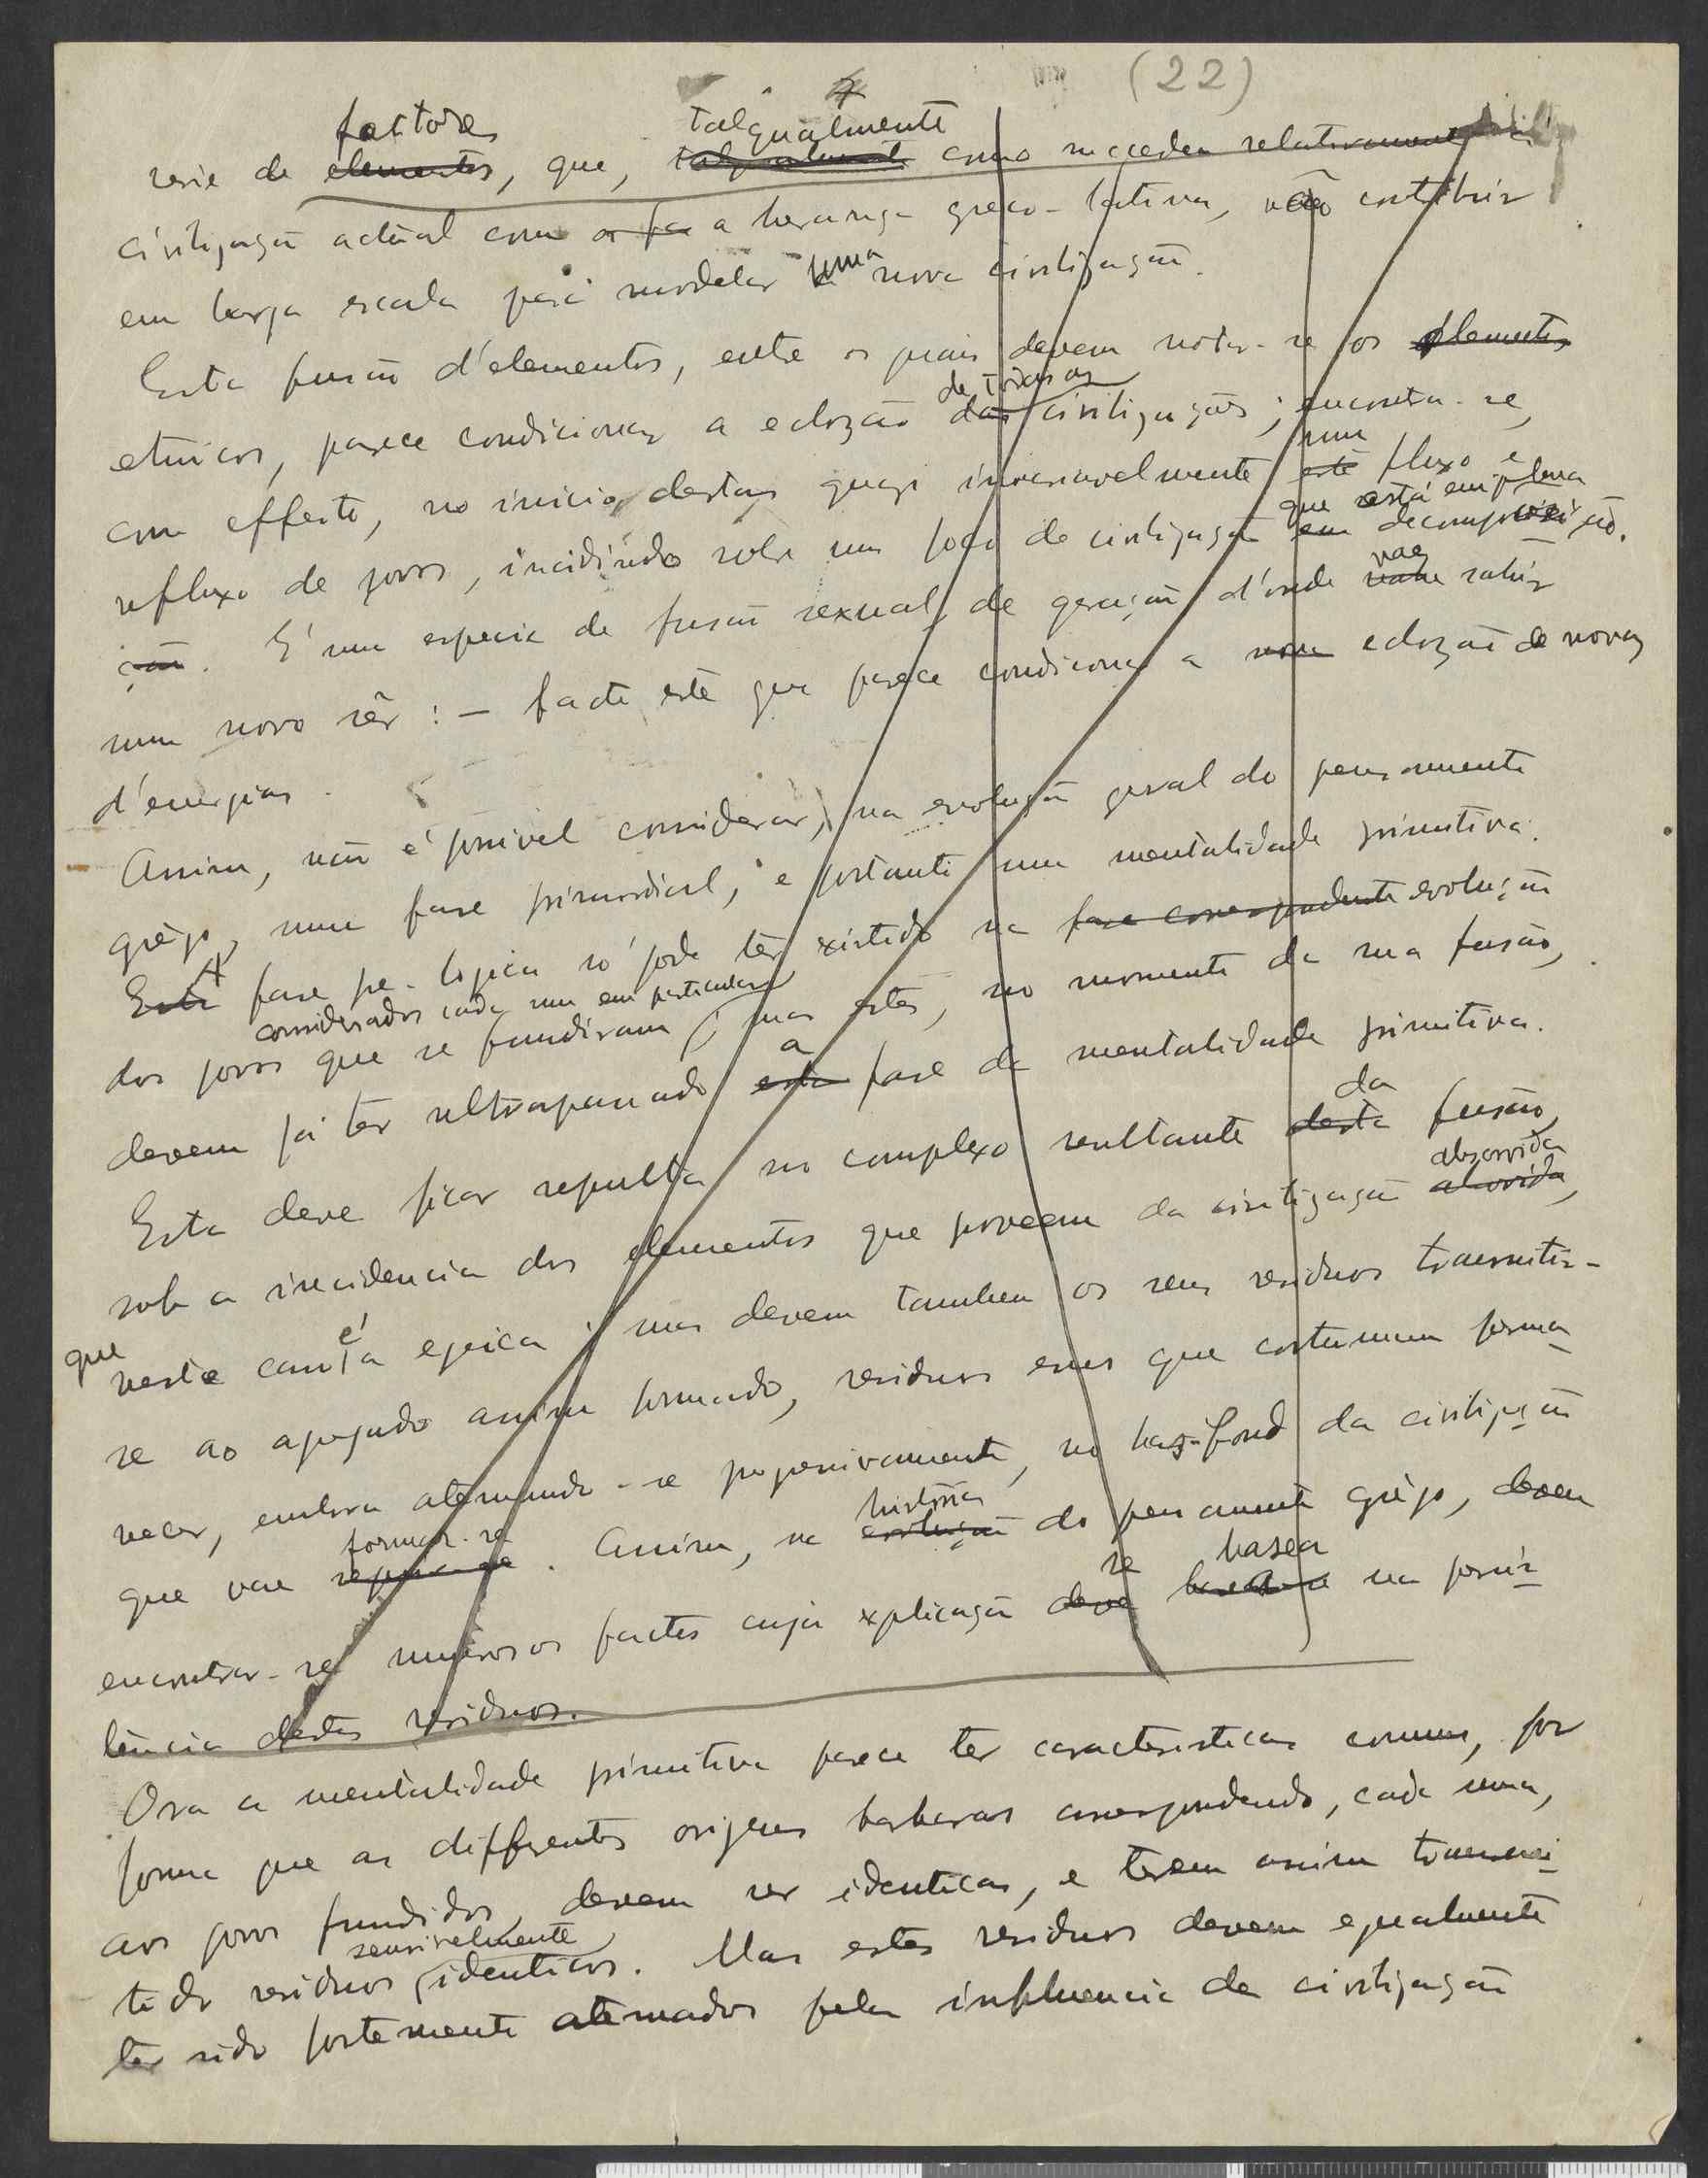 (22)
factores talqualmente
serie de elementos, que, talqualmente como succedeu relativamente á
civilização actual com os fa a herança greco-latina, vão contribuir
em larga escala para modelar uma nova civilização.
Esta fusão d'elementos, entre os quais devem notar-se os elementos
de todas as
etnicos, parece condicionar a eclozão das civilizações; encontra-se,
num
com effeito, no inicio destas, quazi invariavelmente este fluxo e
que está em plena
refluxo de povos, incidindo sobre um foco de civilização em decomposição.
vae
ção. É uma especie de fusão sexual, de geração d'onde vahe sahir
um novo sêr: — facto este que parece condicionar a nova eclozão de novas
d'energias.
Assim, não é possivel considerar, na evolução geral do pensamento
grêgo, uma fase primordial, e portanto uma mentalidade primitiva.
A
Esta fase pre-logica só pode ter existido na fase correspondente evolução
considerados cada um em particular
dos povos que se fundiram; mas estes, no momento da sua fusão,
a
devem já ter ultrapassado esta fase da mentalidade primitiva.
da
Esta deve ficar sepulta no complexo resultante desta fusão,
absorvida
sob a incidencia dos elementos que proveem da civilização absorvida,
que é
neste caso a egeica; mas devem tambem os seus residuos transmitir-
se ao agregado assim formado, residuos esses que costumam perma-
necer, embora atenuando-se progressivamente, no bas-fond da civilização
formar-se
que vae . Assim, na evolução do pensamento grêgo, devem
historia
se basea
encontrar-se numerosos factos cuja explicação deve basear-se na persis-
tência destes residuos.
Ora a mentalidade primitiva parece ter caracteristicas comuns, por
forma que as differentes origens barbaras correspondendo, cada uma,
aos povos fundidos, devem ser identicas, e terem assim transmi-
sensivelmente
tido residuos identicos. Mas estes residuos devem egualmente
ter sido fortemente atenuados pela influencia da civilização